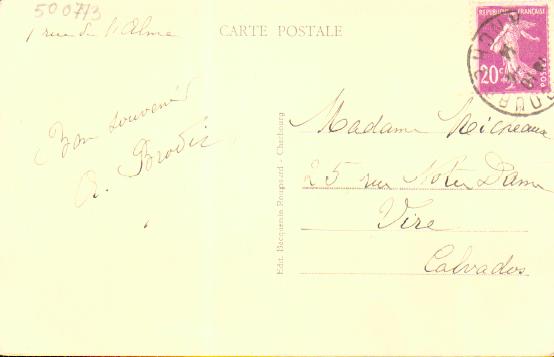 50073
1 rue de l'Alma
CARTE POSTALE
REPUBLIQUE FRANÇAISE
20c
POSTES
Bon souvenir
Madame
25 rue Notre Dame
Vire
Calvados
Edit. Bacquemin Roupsard - Cherbourg